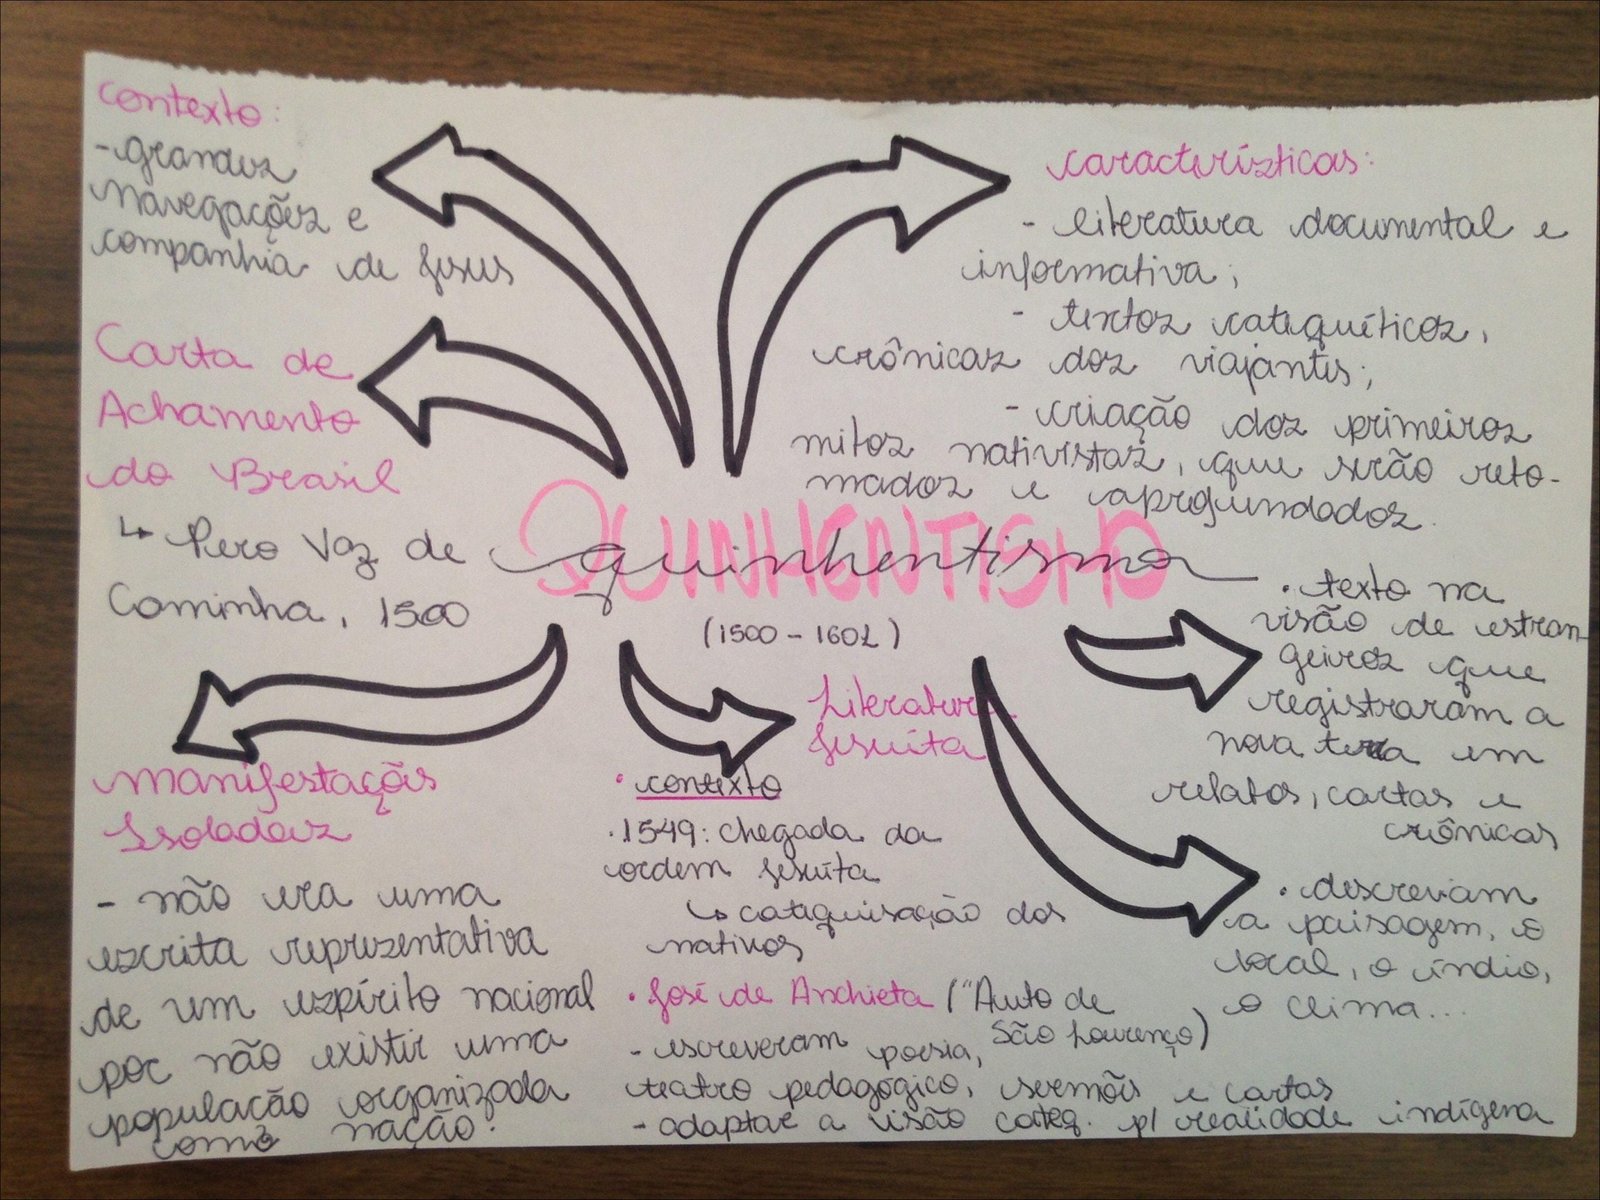 Contexto:
- grandes
navegações e
companhia de Jesus
Carta de
Achamento
do Brasil
↳ Pero Vaz de
Caminha, 1500
características:
- literatura documental e
informativa;
- textos catequéticos,
crônicas dos viajantes;
- criação dos primeiros
mitos nativistas, que serão reto-
mados e aprofundados.
QUINHENTISMO
quinhentismo
(1500 - 1601)
• texto na
visão de estran
geiros que
registraram a
nova terra em
relatos, cartas e
crônicas
• descreviam
a paisagem, o
local, o índio,
o clima...
Literatura
Jesuíta
• contexto
• 1549: chegada da
ordem jesuíta
↳ catequisação dos
nativos
• José de Anchieta ("Auto de
São Lourenço)
- escreveram poesia,
teatro pedagógico, sermões e cartas
- adaptar a visão cateq. p/ realidade indígena
Manifestações
Isoladas
- não era uma
escrita representativa
de um espírito nacional
por não existir uma
população organizada
como nação.